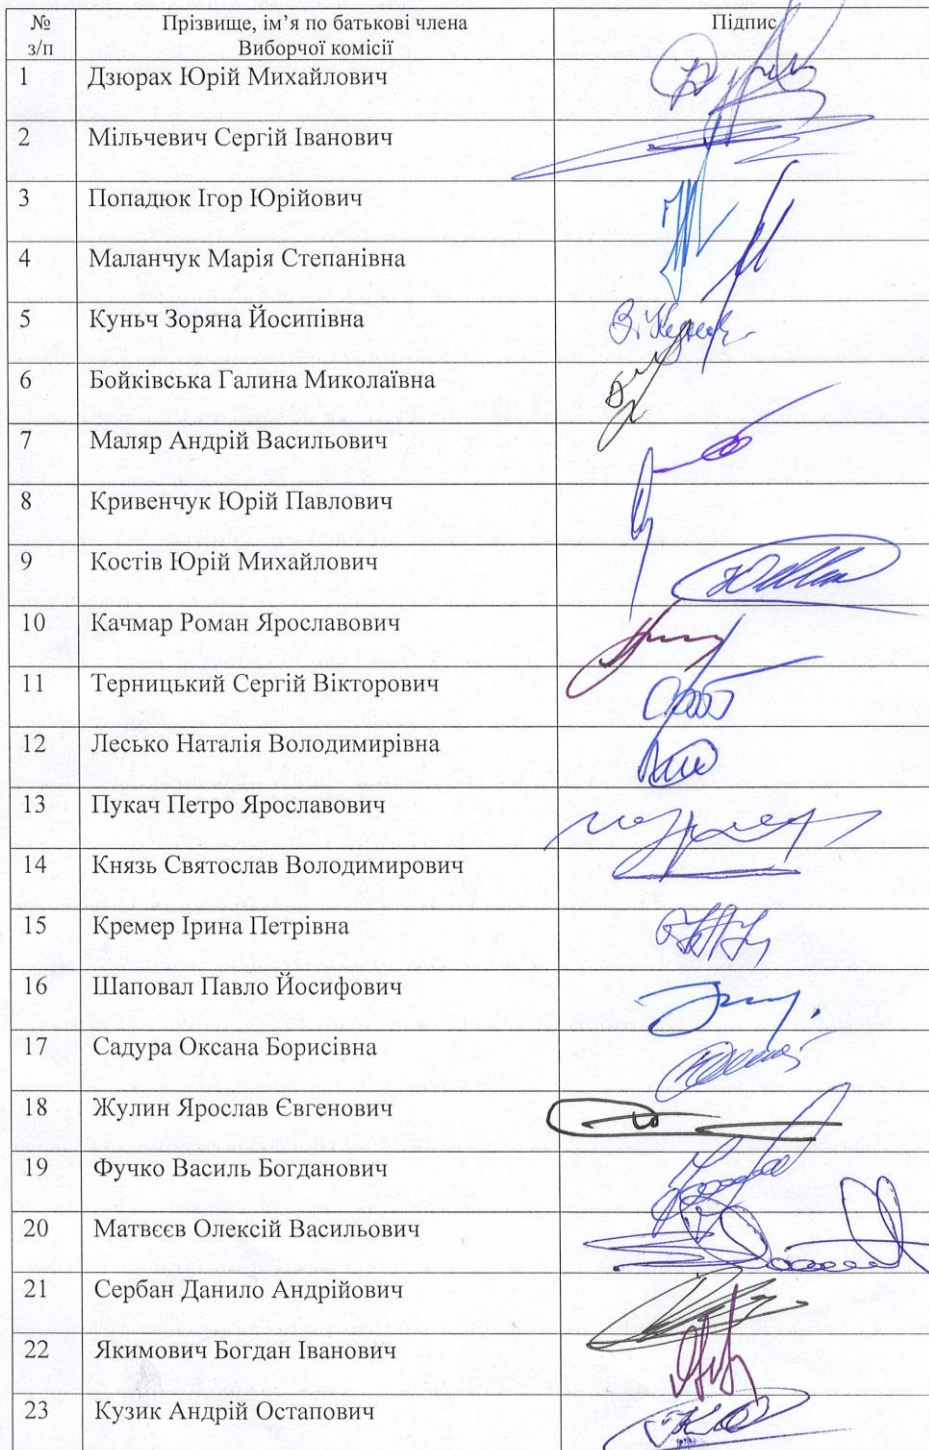 № Прізвище, ім’я по батькові члена Підпис
з/п Виборчої комісії
1 Дзюрах Юрій Михайлович
2 Мільчевич Сергій Іванович
3 Попадюк Ігор Юрійович
4 Маланчук Марія Степанівна
5 Куньч Зоряна Йосипівна
6 Бойківська Галина Миколаївна
7 Маляр Андрій Васильович
8 Кривенчук Юрій Павлович
9 Костів Юрій Михайлович
10 Качмар Роман Ярославович
11 Терницький Сергій Вікторович
12 Лесько Наталія Володимирівна
13 Пукач Петро Ярославович
14 Князь Святослав Володимирович
15 Кремер Ірина Петрівна
16 Шаповал Павло Йосифович
17 Садура Оксана Борисівна
18 Жулин Ярослав Євгенович
19 Фучко Василь Богданович
20 Матвєєв Олексій Васильович
21 Сербан Данило Андрійович
22 Якимович Богдан Іванович
23 Кузик Андрій Остапович